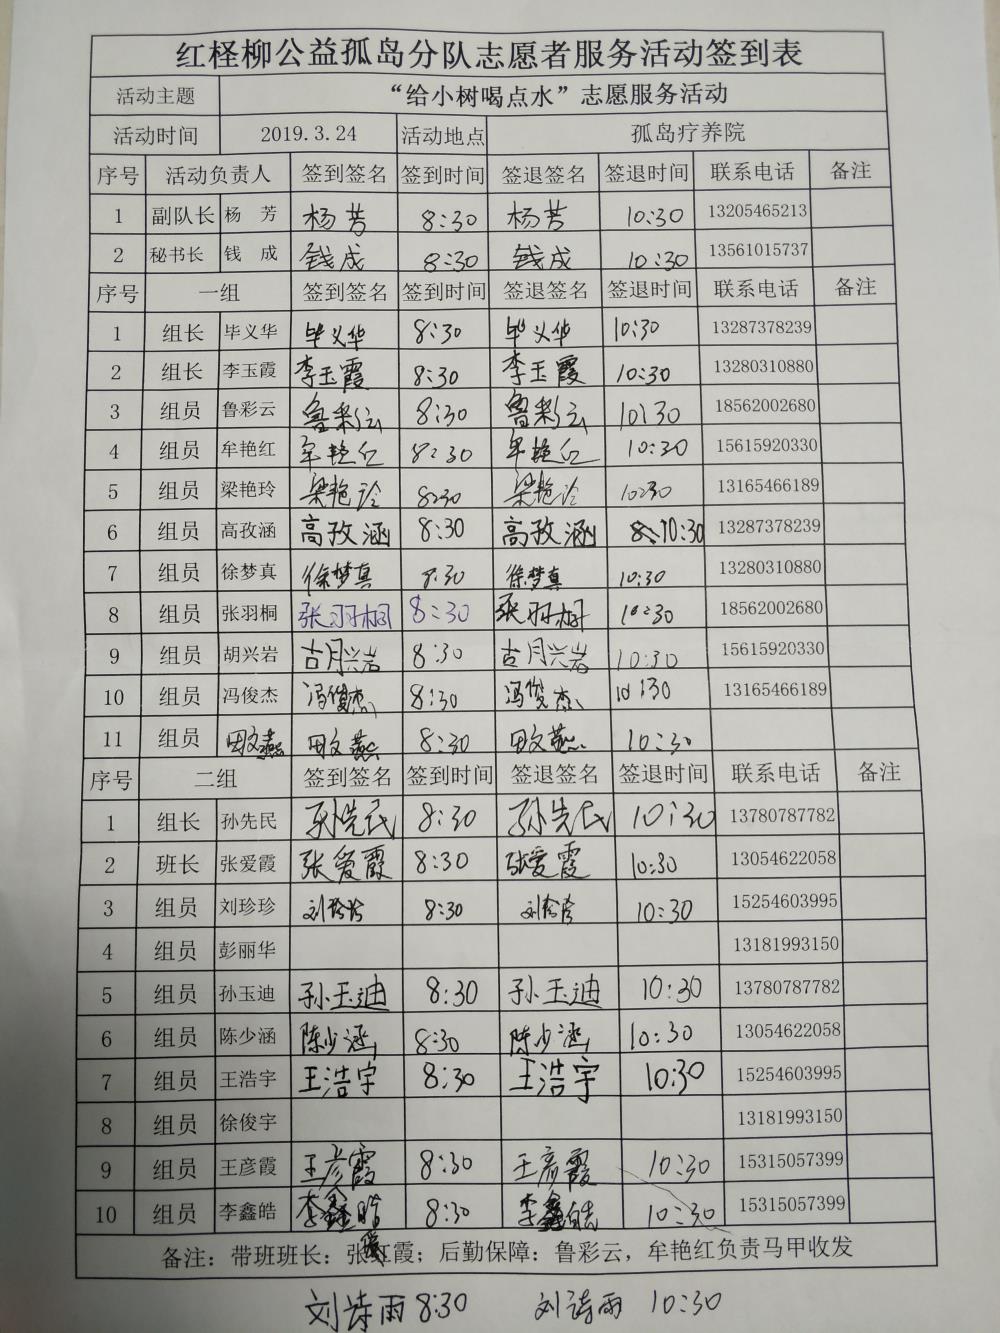 红柽柳公益孤岛分队志愿者服务活动签到表
活动主题 “给小树喝点水”志愿服务活动
活动时间 2019.3.24 活动地点 孤岛疗养院
序号 活动负责人 签到签名 签到时间 签退签名 签退时间 联系电话 备注
1 副队长 杨 芳 杨芳 8:30 杨芳 10:30 13205465213
2 秘书长 钱 成 钱成 8:30 钱成 10:30 13561015737
序号 一组 签到签名 签到时间 签退签名 签退时间 联系电话 备注
1 组长 毕义华 毕义华 8:30 毕义华 10:30 13287378239
2 组长 李玉霞 李玉霞 8:30 李玉霞 10:30 13280310880
3 组员 鲁彩云 鲁彩云 8:30 鲁彩云 10:30 18562002680
4 组员 牟艳红 牟艳红 8:30 牟艳红 10:30 15615920330
5 组员 梁艳玲 梁艳玲 8:30 梁艳玲 10:30 13165466189
6 组员 高孜涵 高孜涵 8:30 高孜涵 10:30 13287378239
7 组员 徐梦真 徐梦真 8:30 徐梦真 10:30 13280310880
8 组员 张羽桐 张羽桐 8:30 张羽桐 10:30 18562002680
9 组员 胡兴岩 胡兴岩 8:30 胡兴岩 10:30 15615920330
10 组员 冯俊杰 冯俊杰 8:30 冯俊杰 10:30 13165466189
11 组员 田文燕 田文燕 8:30 田文燕 10:30
序号 二组 签到签名 签到时间 签退签名 签退时间 联系电话 备注
1 组长 孙先民 孙先民 8:30 孙先民 10:30 13780787782
2 班长 张爱霞 张爱霞 8:30 张爱霞 10:30 13054622058
3 组员 刘珍珍 刘珍珍 8:30 刘珍珍 10:30 15254603995
4 组员 彭丽华 13181993150
5 组员 孙玉迪 孙玉迪 8:30 孙玉迪 10:30 13780787782
6 组员 陈少涵 陈少涵 8:30 陈少涵 10:30 13054622058
7 组员 王浩宇 王浩宇 8:30 王浩宇 10:30 15254603995
8 组员 徐俊宇 13181993150
9 组员 王彦霞 王彦霞 8:30 王彦霞 10:30 15315057399
10 组员 李鑫皓 李鑫皓 8:30 李鑫皓 10:30 15315057399
备注：带班班长：张爱霞；后勤保障：鲁彩云，牟艳红负责马甲收发
刘诗雨 8:30 刘诗雨 10:30